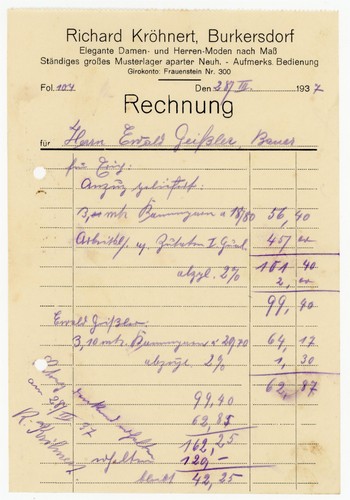 Richard Kröhnert, Burkersdorf
Elegante Damen- und Herren-Moden nach Maß
Ständiges großes Musterlager aparter Neuh. - Aufmerks. Bedienung
Girokonto: Frauenstein Nr. 300
Fol. 104 Den 28/IV. 1937
Rechnung
für Herrn Ewald Geißler, Bauer
für Erich:
Anzug geliefert:
3,00 mtr. Kammgarn a 18/80 56,40
u. Zutaten I Qual. 45,00
abzgl. 2% 101 40
2,00
99,40
Ewald Geißler
3,10 mtr. Kammgarn a 20,70 64,17
abzügl. 2% 1,30
62,87
99,40
62,85
162,25
erhalten 120,-
bleibt 42,25
Betrag dankend erhalten
am 28/IV 37
R. Kröhnert